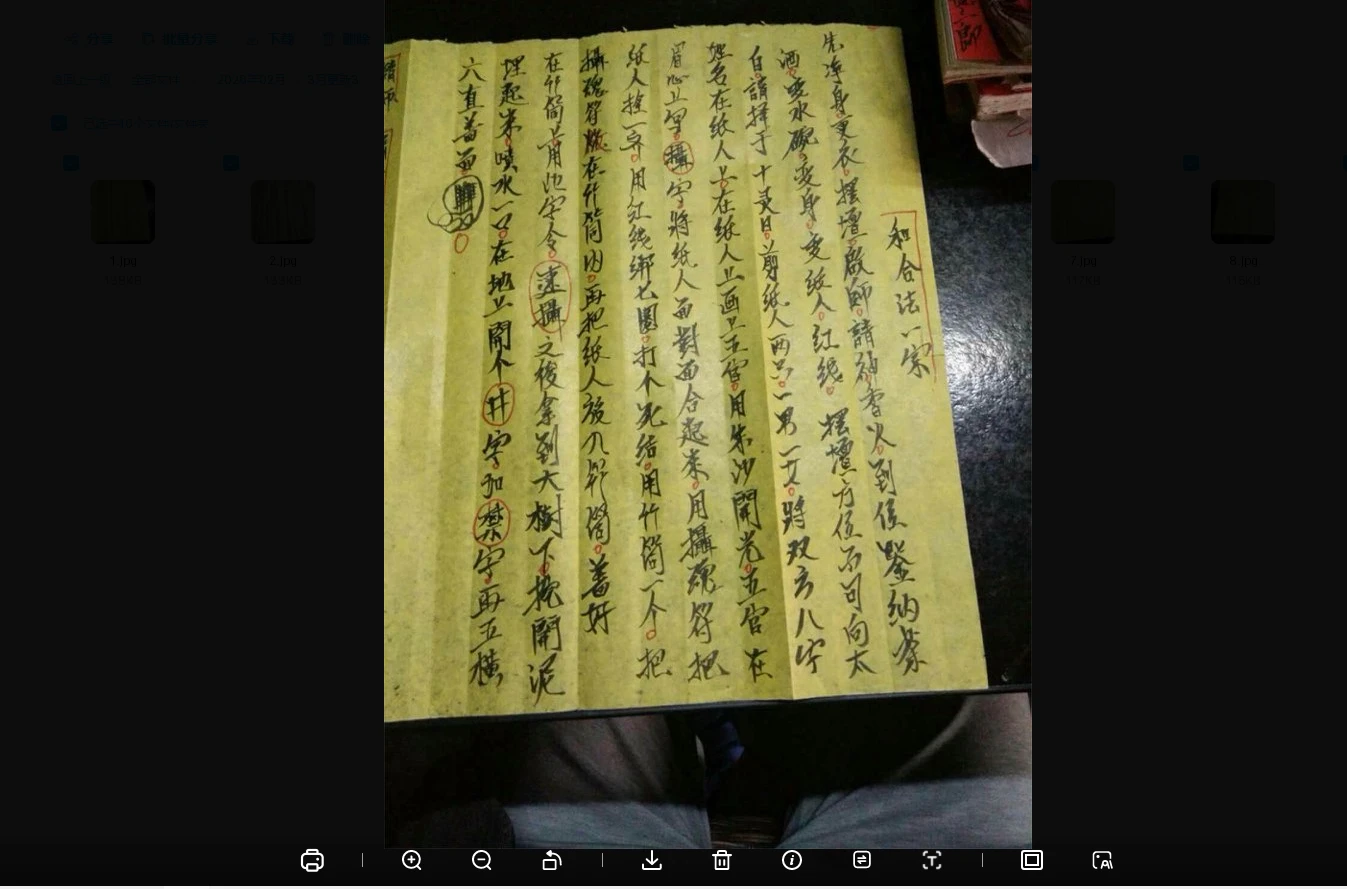 和合法一宗
先净身更衣。摆壇。啟師。請神。香火。到位鉴納茶
酒。变水碗。变身。变纸人。红线。摆壇方位不可向太
白。請择于十灵日。剪纸人两只。一男一女。將双方八字
姓名在纸人上。在纸人上画上五官。用朱沙開光。五官在
眉心上写攝字。將纸人面對面合起来。用攝魂符把
纸人拴一齐。用红线绑七圈。打个死结。用竹筒一个。把
攝魂符放在竹筒内。再把纸人放入竹筒。蓋好
在竹筒上用
字令。速攝之後拿到大樹下。挖開泥
埋起来。喷水一口。在地上開个井字。加禁字。再五横
六直蓋面
1.jpg
2.jpg
7.jpg
8.jpg